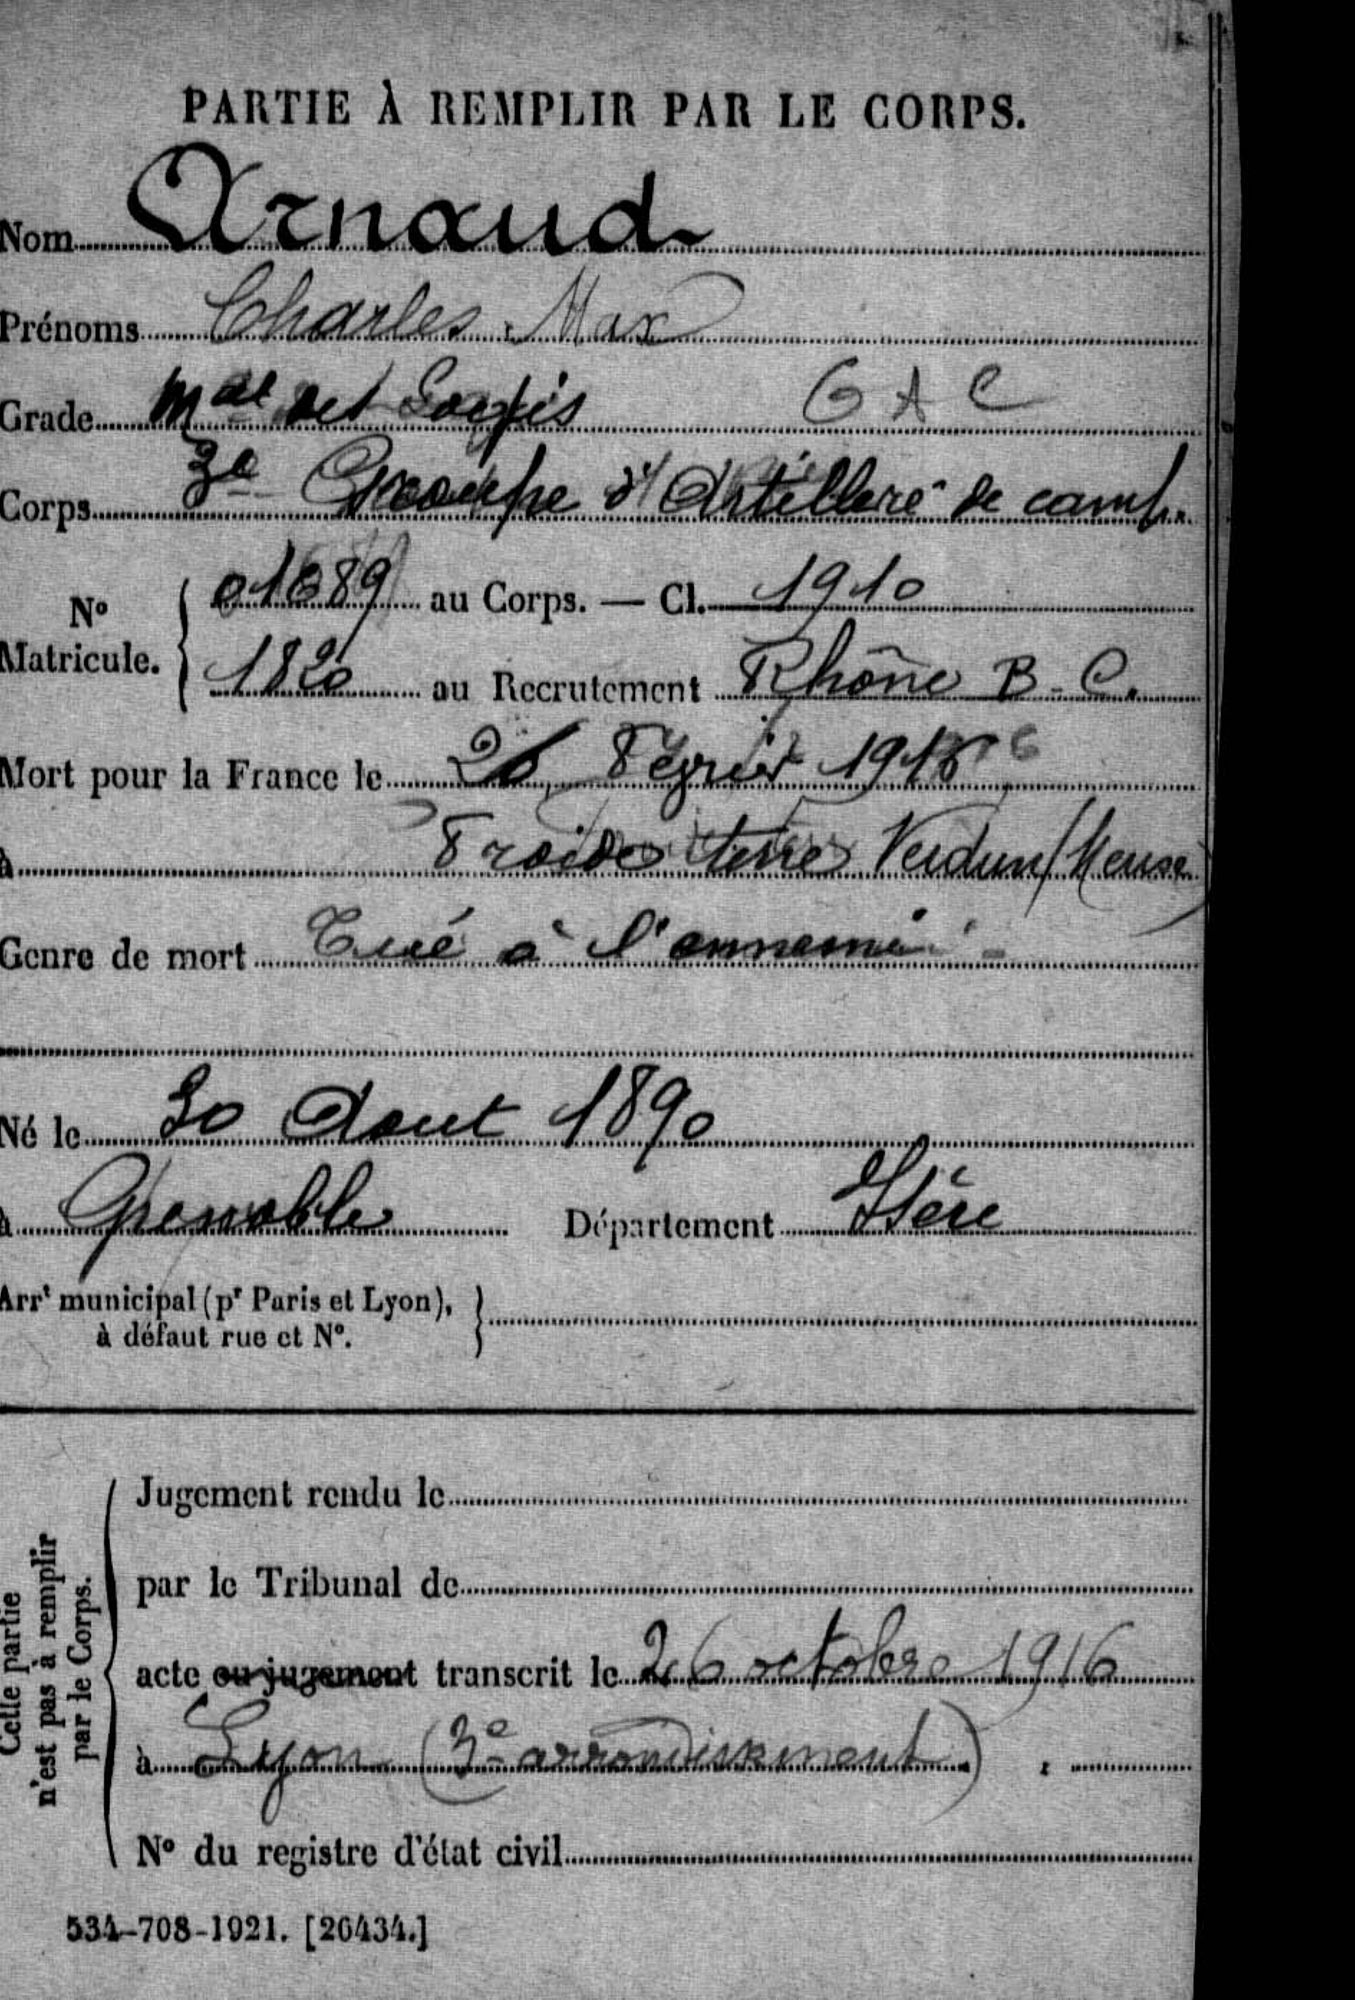 PARTIE À REMPLIR PAR LE CORPS.
Nom Arnaud
Prénoms Charles Max
Grade Mal des Logis G A C
Corps 3e Groupe d'Artillerie de camp.
No Matricule. 01689 au Corps. — Cl. 1910
1820 au Recrutement Rhône B - C.
Mort pour la France le 26 Février 1916 6
à Froide terre Verdun (Meuse
Genre de mort Tué à l'ennemi
Né le 30 Aout 1890
à Grenoble Département Isère
Arrt municipal (pr Paris et Lyon),
à défaut rue et No.
Cette partie
n'est pas à remplir
par le Corps.
Jugement rendu le
par le Tribunal de
acte ou jugement transcrit le 26 octobre 1916
à Lyon (3e arrondissement)
No du registre d'état civil
534-708-1921. [26434.]